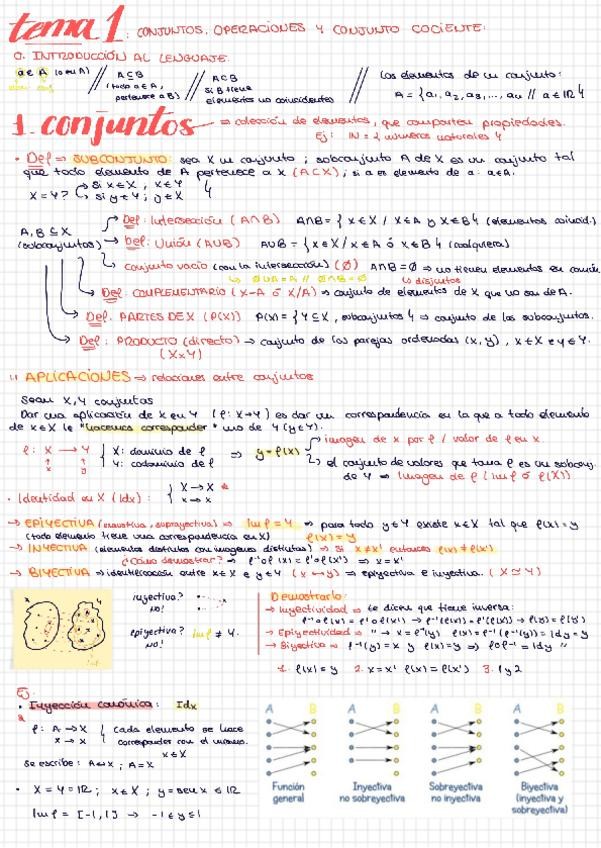 tema 1: CONJUNTOS, OPERACIONES Y CONJUNTO COCIENTE:
0. INTRODUCCIÓN AL LENGUAJE
a ∈ A (o en A) // A ⊆ B // A ⊂ B // Los elementos de un conjunto:
(todo a ∈ A, pertenece a B) si B tiene elementos no coincidentes A = {a₁, a₂, a₃, ..., aₙ // a ∈ ℝ}
1. conjuntos → colección de elementos, que comparten propiedades.
Ej: ℕ = {números naturales}
• Def ⇒ SUBCONJUNTO: sea X un conjunto; subconjunto A de X es un conjunto tal
que todo elemento de A pertenece a X (A ⊂ X); si a es elemento de a: a ∈ A.
X = Y? si x ∈ X, x ∈ Y
si y ∈ Y; y ∈ X
A, B ⊆ X
(subconjuntos)
Def: Intersección (A∩B) A∩B = {x ∈ X / x ∈ A y x ∈ B} (elementos coincid.)
Def: Unión (A∪B) A∪B = {x ∈ X / x ∈ A ó x ∈ B} (cualquiera)
conjunto vacío (con la intersección) (∅) A∩B = ∅ ⇒ no tienen elementos en común
↳ ∅∪A = A // ∅∩B = ∅ ↳ disjuntos
Def: COMPLEMENTARIO (X-A ó X/A) → conjunto de elementos de X que no son de A.
Def: PARTES DE X (P(X)) P(X) = {Y ⊆ X, subconjuntos} ⇒ conjunto de los subconjuntos.
Def: PRODUCTO (directo) → conjunto de las parejas ordenadas (x, y), x ∈ X e y ∈ Y.
(X×Y)
1.1 APLICACIONES → relaciones entre conjuntos
Sean X, Y conjuntos
Dar una aplicación de X en Y (f: X→Y) es dar una correspondencia en la que a todo elemento
de x ∈ X le "hacemos corresponder" uno de Y (y ∈ Y).
f: X → Y { X: dominio de f ⇒ y = f(x) imagen de x por f / valor de f en x
Y: codominio de f el conjunto de valores que toma f es un subconj.
de Y → Imagen de f (Im f ó f(X))
• Identidad en X (Idx): { X → X
x → x
→ EPIYECTIVA (exhaustiva, suprayectiva) ⇒ Im f = Y ⇒ para todo y ∈ Y existe x ∈ X tal que f(x) = y
(todo elemento tiene una correspondencia en X) f(x) = y
→ INYECTIVA (elementos distintos con imágenes distintas) → Si x ≠ x' entonces f(x) ≠ f(x')
¿Cómo demostrar? → f⁻¹of(x) = f⁻¹of(x') ⇒ x = x'
→ BIYECTIVA → identificación entre x ∈ X e y ∈ Y (x ↔ y) → epiyectiva e inyectiva. (X ≃ Y)
inyectiva?
NO!
epiyectiva? Im f ≠ Y.
NO!
Demostrarlo:
→ Inyectividad → te dicen que tiene inversa:
→ Epiyectividad → " → x = f⁻¹(y) f(x) = f(f⁻¹(y)) = Idy = y
→ Biyectiva → f⁻¹(y) = x y f(x) = y ⇒ fof⁻¹ = Idy "
1. f(x) = y 2. x = x' f(x) = f(x') 3. 1 y 2
Ej:
• Inyección canónica: Idx
f: A → X { cada elemento se hace
x → x corresponder con el mismo.
x ∈ X
Se escribe: A ↪ X; A = X
• X = Y = ℝ; x ∈ X; y = sen x ∈ ℝ
Im f = [-1, 1] → -1 ≤ y ≤ 1
A B A B A B A B
Función general
Inyectiva no sobreyectiva
Sobreyectiva no inyectiva
Biyectiva (inyectiva y sobreyectiva)